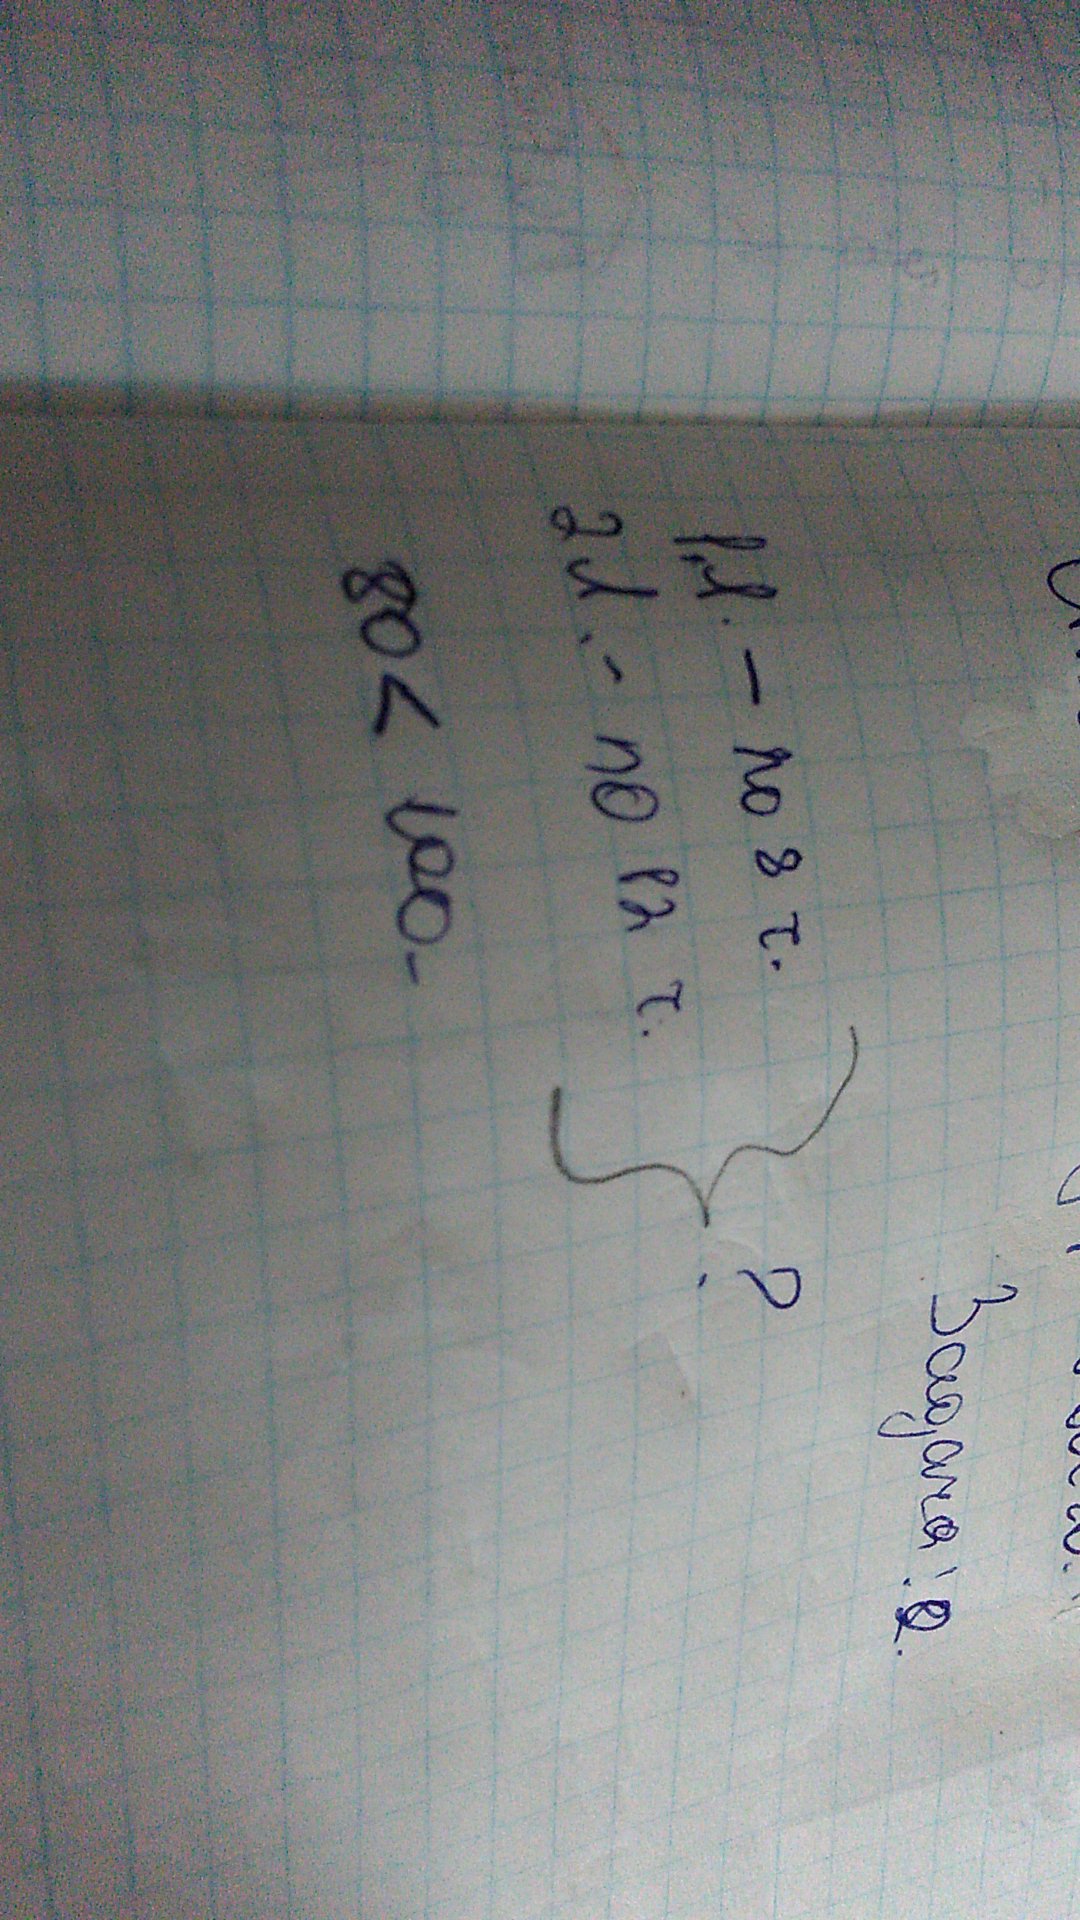 Задача: 2.
1 л. - по 8 т.
2 л. - по 12 т.
?
80 < 100.